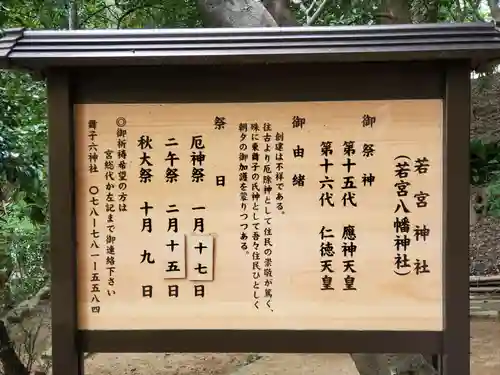 若宮神社
（若宮八幡神社）
御祭神
第十五代　應神天皇
第十六代　仁徳天皇
御由緒
創建は不祥である。
往古より厄除神として住民の崇敬が篤く、
殊に東舞子の氏神として吾々住民ひとしく
朝夕の御加護を蒙りつつある。
祭日
厄神祭　一月十七日
二午祭　二月十五日
秋大祭　十月九日
◎御祈祷希望の方は
宮総代か左記まで御連絡下さい
舞子六神社　〇七八―七八一―五五八四